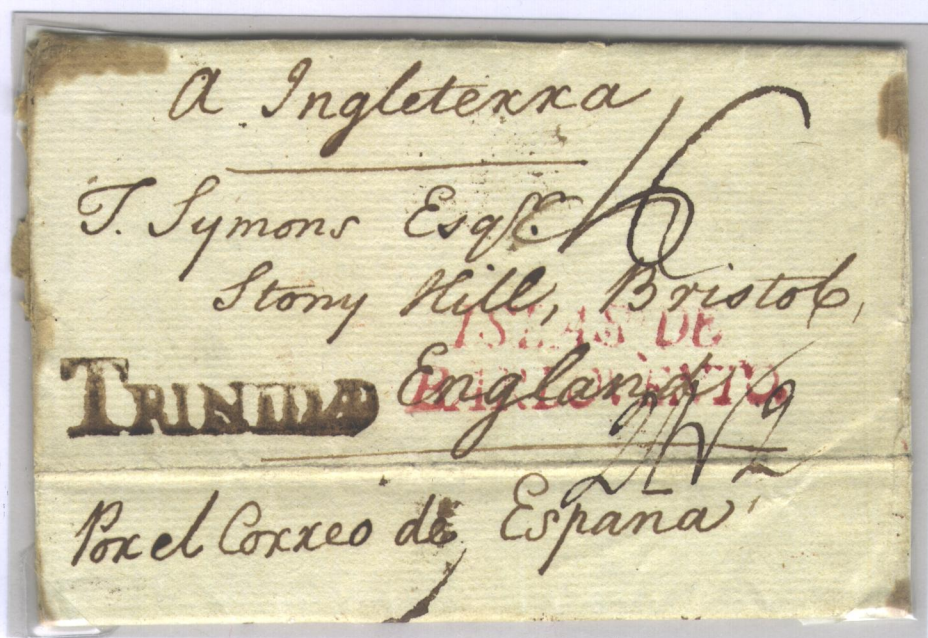 A Ingleterra
T. Symons Esqr.
6
Stony Hill, Bristol,
ISLAS DE
BARLOVENTO
England
TRINIDAD
Por el Correo de España